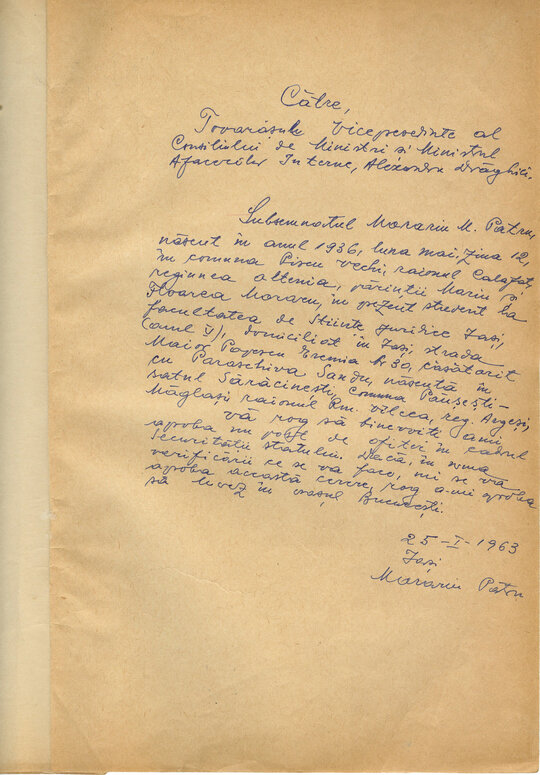 Către,
Tovarășulu Vicepreședinte al
Consiliului de Miniștri și Ministrul
Afacerilor Interne, Alexandru Drăghici.
Subsemnatul Morariu M. Patru,
născut în anul 1936, luna mai, ziua 12,
în comuna Piscu Vechi, raionul Calafat,
regiunea Oltenia, părinții Marin și
Floarea Moraru, în prezent student la
facultatea de Stiințe juridice Iași,
(anul V), domiciliat în Iași, strada
Maior Popescu Eremia Nr 30, căsătorit
cu Paraschiva Sandu, născută în
satul Sărăcinești, comuna Păușești-
Măglași raionul Rm. Vîlcea, reg. Argeși,
vă rog să binevoiți a-mi
aproba un post de ofițer în cadrul
Securității statului. Dacă, în urma
verificării ce se va face, mi se va
aproba această cerere, rog a-mi aproba
să lucrez în orașul București.
25-I-1963
Iași
Morariu Patru